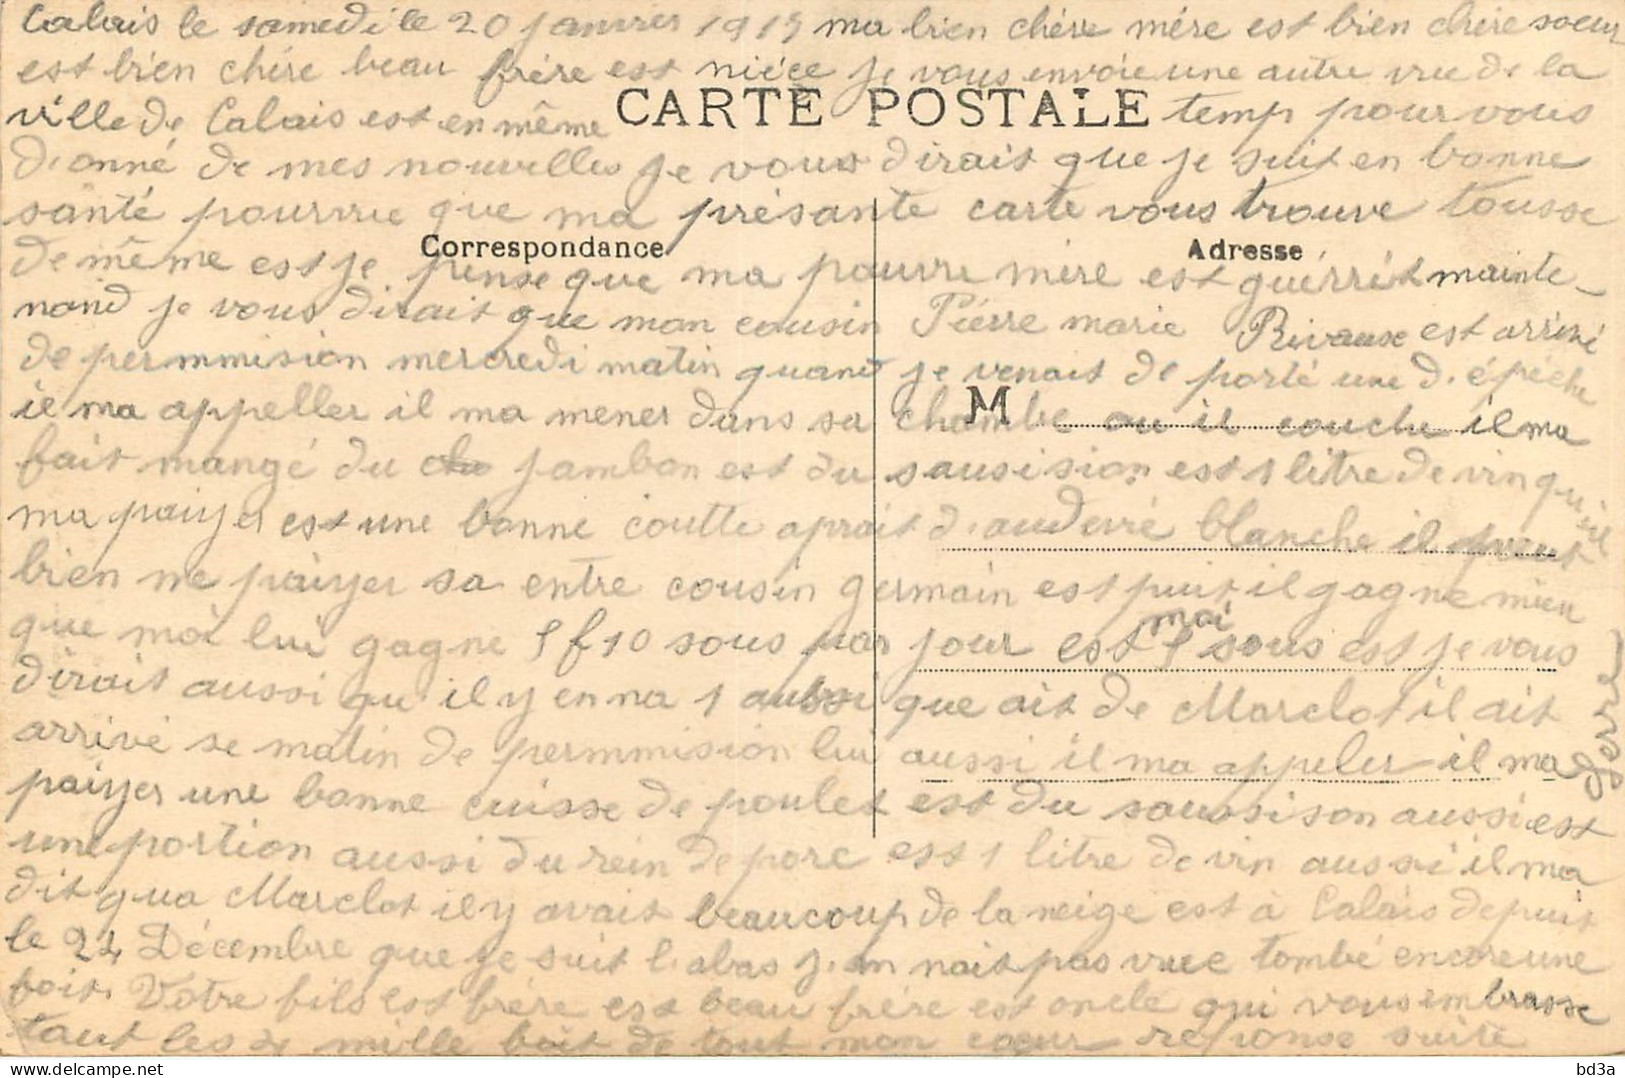 Calais le samedi le 20 janvier 1915 ma bien chére mére est bien chére soeur
est bien chére beau frére est niéce je vous envoie une autre vue de la
ville de Calais est en même temp pour vous
CARTE POSTALE
d.onné de mes nouvelles je vous dirait que je suit en bonne
santé pourvue que ma présante carte vous trouve tousse
Correspondance
Adresse
de même est je pense que ma pauvre mére est guérrit mainte-
nand je vous dirait que mon cousin Piérre marie Rivaux est arrivé
de permmision mercredi matin quand je venait de porté une d.épéche
il ma appeller il ma mener dans sa chambe ou il couche il ma
M
fait mangé du jambon est du sausision est 1 litre de vin qu'il
ma paiyer est une bonne goutte aprait d. blanche il peut
bien me paiyer sa entre cousin germain est puit il gagne mieu
que moi lui gagne 1 f 10 sous par jour est moi 1 sous est je vous
dirait aussi qu'il y en na 1 aussi que ait de Marclot il ait
arrivé se matin de permmision lui aussi il ma appeler il ma
paiyer une bonne cuisse de poulet est du saussison aussi est
une portion aussi du rein de porc est 1 litre de vin aussi il ma
dit qua Marclot il y avait beaucoup de la neige est à Calais depuit
le 24 Décembre que je suit l.abas j.en nait pas vue tombé encore une
foit. Votre fils est frére est beau frére est oncle qui vous embrasse
tout les 4 mille foit de tout mon coeur reponse suite